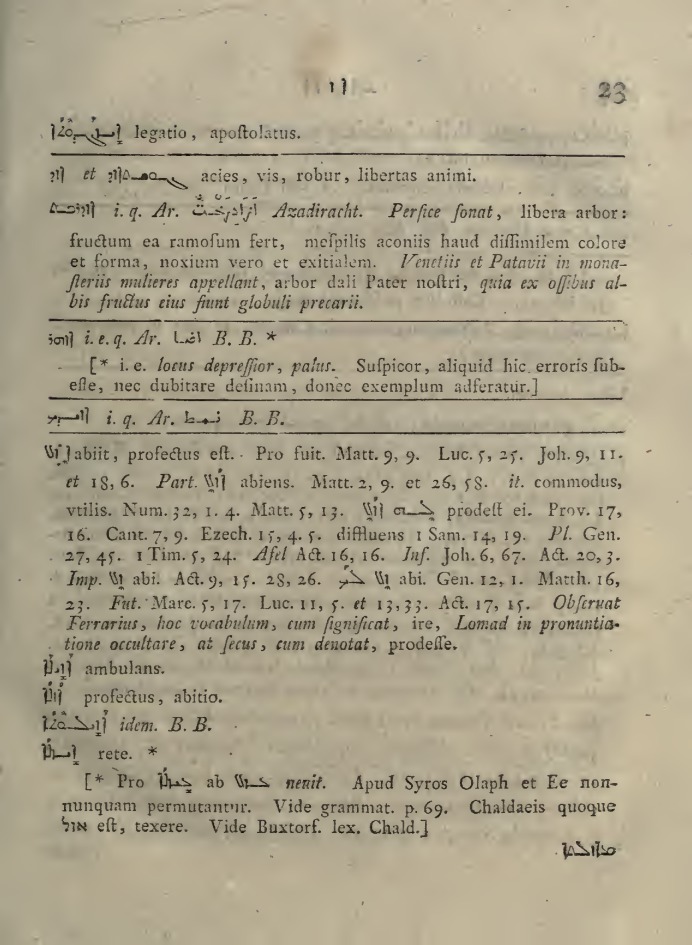 ܐܙ 23
ܐܝܙܓܕܘܬܐ legatio, apoſtolatus.
ܐܙܕ et acies, vis, robur, libertas animi.
i. q. Ar. ازادرخت Azadiracht. Perſice ſonat, libera arbor:
fructum ea ramoſum fert, meſpilis aconiis haud diſſimilem colore
et forma, noxium vero et exitialem. Venetiis et Patavii in mona-
ſteriis mulieres appellant, arbor dali Pater noſtri, quia ex oſſibus al-
bis fructus eius fiunt globuli precarii.
i. e. q. Ar. B. B. *
[* i. e. locus depreſſior, palus. Suſpicor, aliquid hic erroris ſub-
eſſe, nec dubitare deſinam, donec exemplum adferatur.]
i. q. Ar. B. B.
ܐܙܠ abiit, profectus eſt. Pro fuit. Matt. 9, 9. Luc. 5, 25. Joh. 9, 11.
et 18, 6. Part. ܐܙܠ abiens. Matt. 2, 9. et 26, 58. it. commodus,
vtilis. Num. 32, 1. 4. Matt. 5, 13. ܐܙܠ ܠܗ prodeſt ei. Prov. 17,
16. Cant. 7, 9. Ezech. 15, 4. 5. diffluens 1 Sam. 14, 19. Pl. Gen.
27, 45. 1 Tim. 5, 24. Afel Act. 16, 16. Inf. Joh. 6, 67. Act. 20, 3.
Imp. ܙܠ abi. Act. 9, 15. 28, 26. ܙܠ ܠܟ abi. Gen. 12, 1. Matth. 16,
23. Fut. Marc. 5, 17. Luc. 11, 5. et 13, 33. Act. 17, 15. Obſervat
Ferrarius, hoc vocabulum, cum ſignificat, ire, Lomad in pronuntia-
tione occultare, at ſecus, cum denotat, prodeſſe.
ambulans.
profectus, abitio.
idem. B. B.
rete. *
[* Pro ab nevit. Apud Syros Olaph et Ee non-
nunquam permutantur. Vide grammat. p. 69. Chaldaeis quoque
אזל eſt, texere. Vide Buxtorf. lex. Chald.]
ܡܐܙܠܬܐ